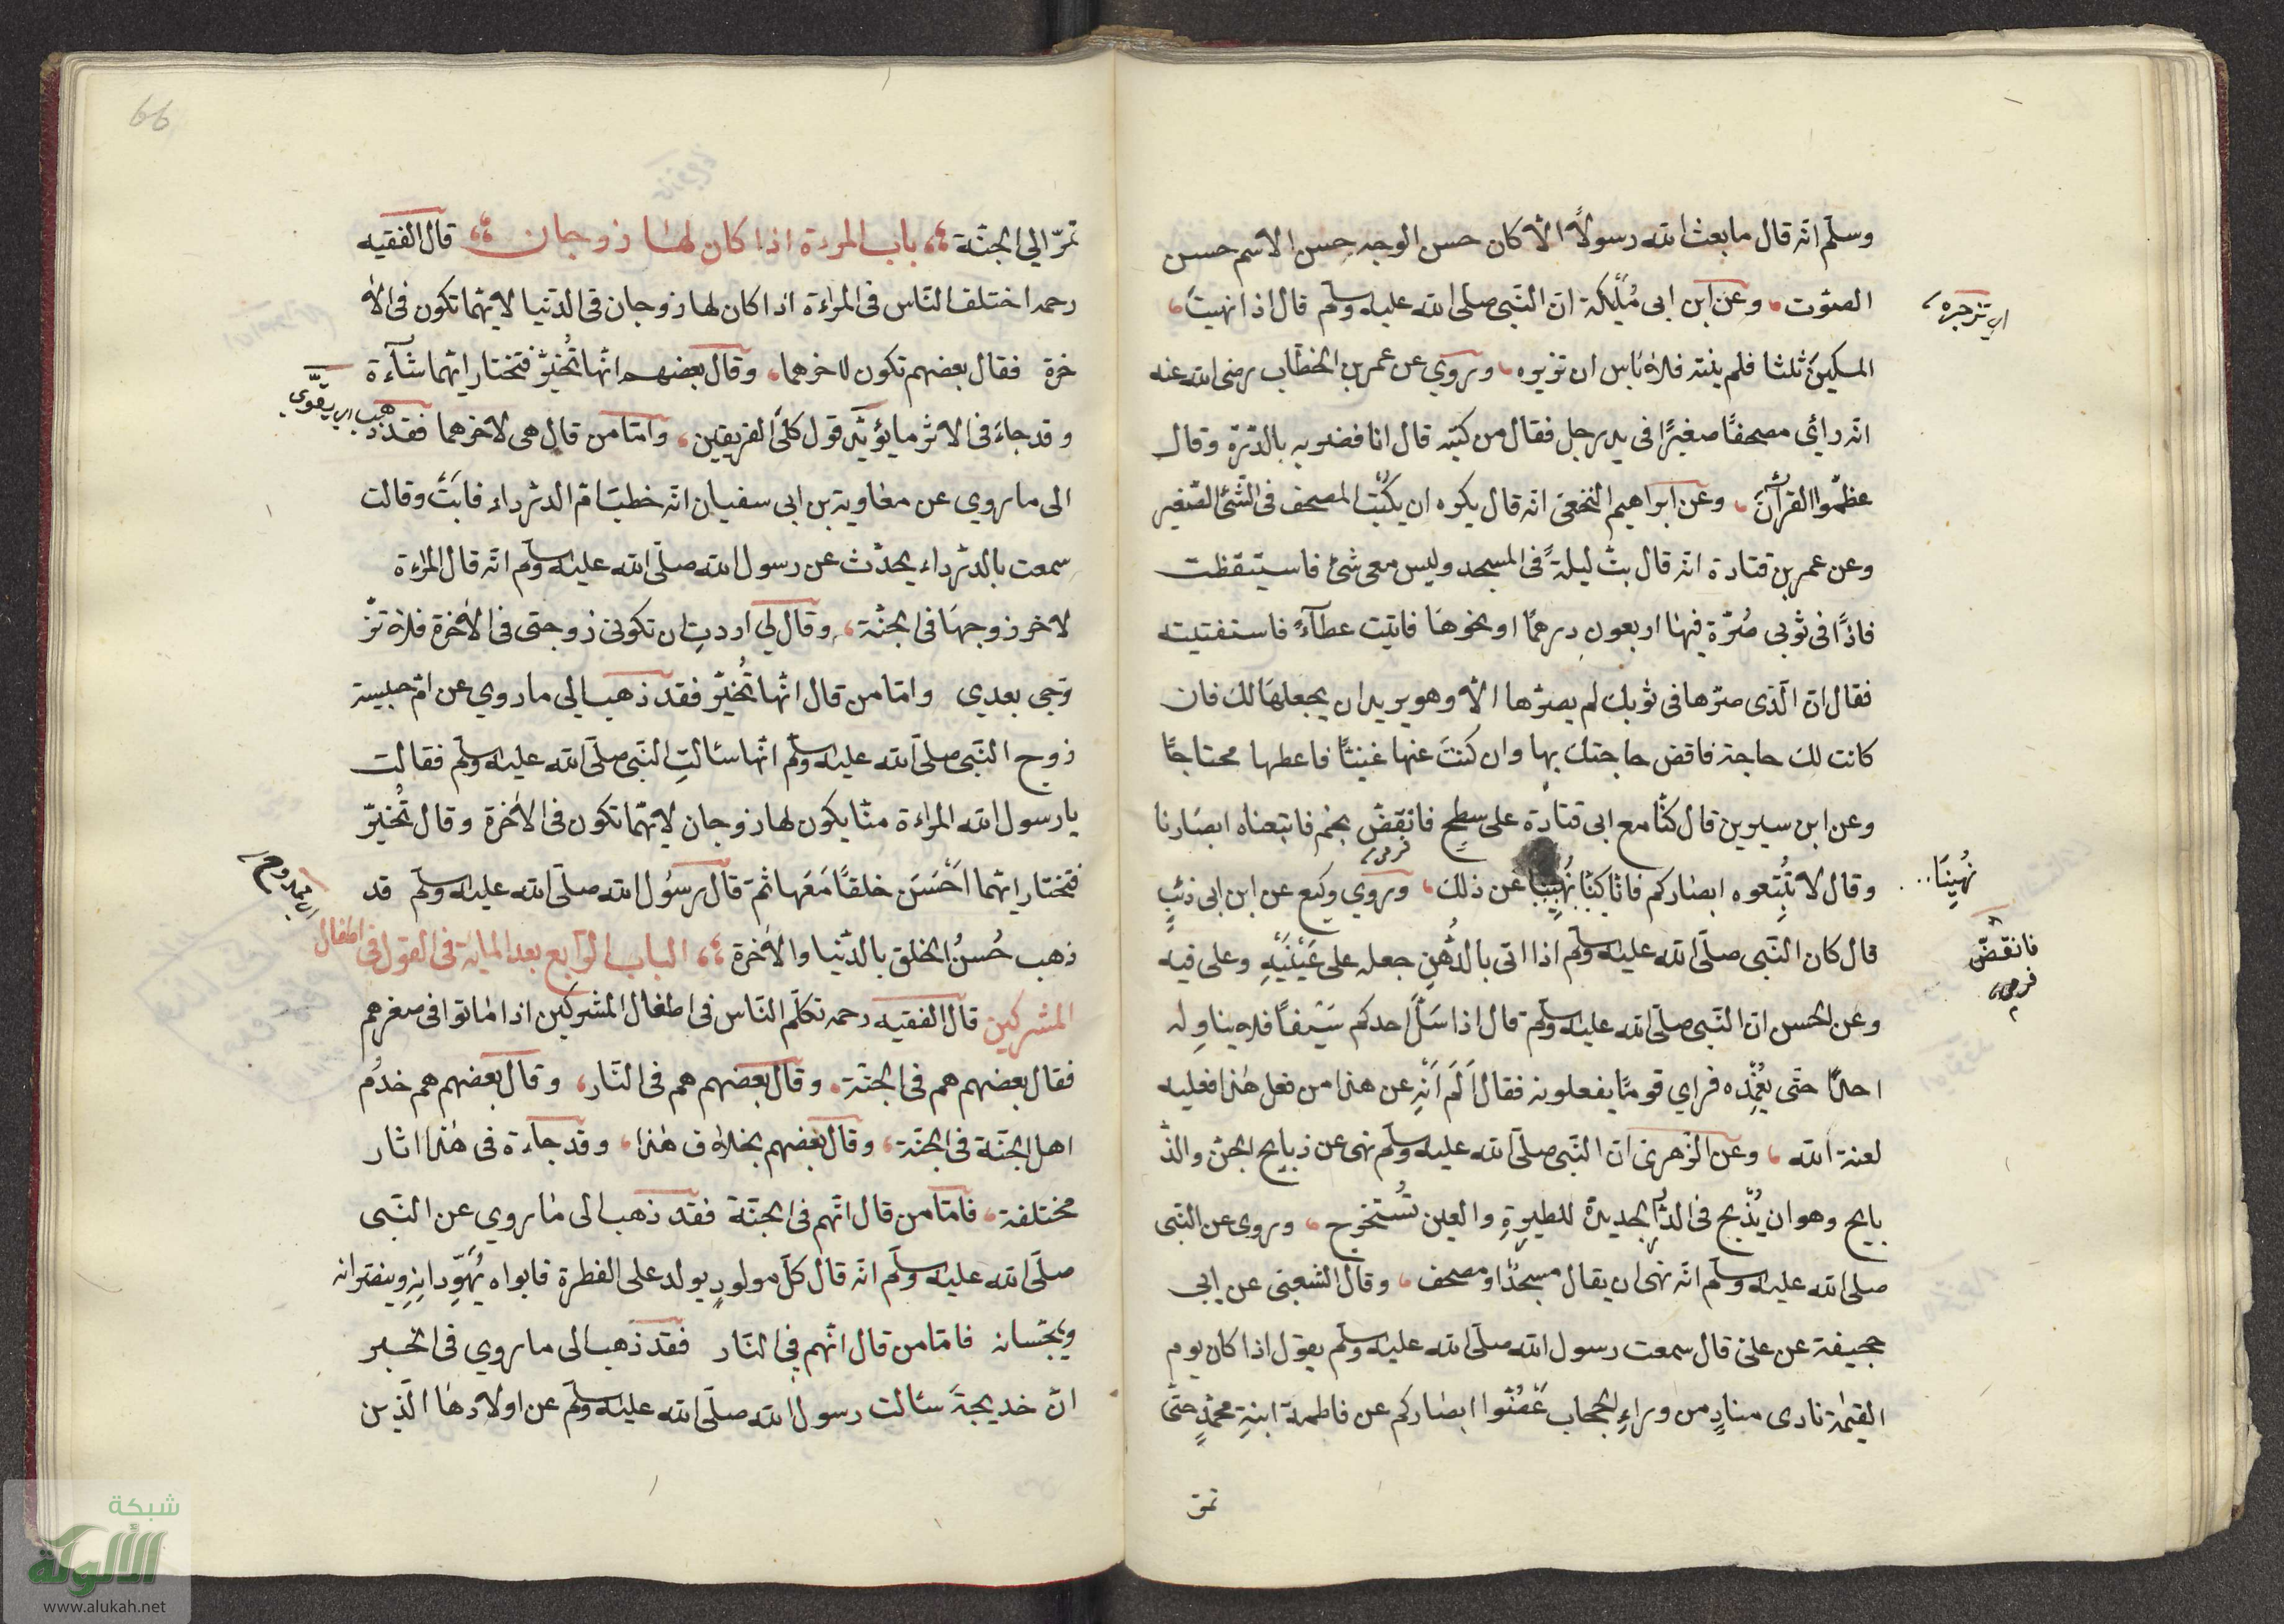 وسلّم انّه قال ما بعث الله رسولاً الاّ كان حسن الوجه حسن الاسم حسن
الصّوت، وعن ابن ابى مُلَيْكة انّ النّبى صلّى الله عليه وسلّم قال اذا نهيت
المسكين ثلثا فلم ينته فلا بأس ان تزبره، وروي عن عمر بن الخطّاب رضى الله عنه
اى تزجره
انّه رأي مصحفًا صغيرًا فى يد رجل فقال من كتبه قال انا فضربه بالدّرّة وقال
عظّموا القرآن، وعن ابراهيم النخعىّ انّه قال يكره ان يكتب المصحف فى الشّئ الصّغير
وعن عمر بن قتادة انّه قال بتّ ليلةً فى المسجد وليس معى شئ فاستيقظت
فاذًا فى ثوبى صُرّة فيها اربعون درهمًا او نحوها فاتيت عطآءً فاستفتيته
فقال انّ الّذى صرّها فى ثوبك لم يصرّها الاّ وهو يريد ان يجعلها لك فان
كانت لك حاجة فاقض حاجتك بها وان كنتَ عنها غنيّا فاعطها محتاجًا
وعن ابن سيرين قال كنّا مع ابى قتادة على سطح فانقضّ نجم فاتبعناه ابصارنا
وقال لا تُتبعوه ابصاركم فانّا كنّا نُهِينَا عن ذلك، وروي وكيع عن ابن ابى ذئب
نُهِينَا
قال كان النّبى صلّى الله عليه وسلّم اذا اتى بالدُّهن جعله على عَيْنَيْهِ وعلى فيه
فانقضّ
وعن الحسن انّ النّبى صلّى الله عليه وسلّم قال اذا سَلَّ احدكم سَيْفًا فلا يناوله
احدًا حتّى يُغمِدَه فراي قومًا يفعلونه فقال اَلَم اَنْهِ عن هذا من فعل هٰذا فعليه
لعنة الله، وعن الزّهرىّ انّ النّبى صلّى الله عليه وسلّم نهى عن ذبايح الجنّ والذّ
بايح وهو ان يُذْبح فى الدّار الجديدة للطيرةِ والعين تُستخرج، وروى عن النّبى
صلى الله عليه وسلّم انّه نهى ان يقال مسيجدٌ او مصيحف، وقال الشعبىّ عن ابى
جحيفة عن علىّ قال سمعت رسول الله صلّى الله عليه وسلّم يقول اذا كان يوم
القيمة نادى منادٍ من وراءِ الحجاب غُضّوا ابصاركم عن فاطمة ابنةِ محمّدٍ حتّى
تمرّ
66
تمرّ الي الجنّة باب المرءة اذا كان لها زوجان قال الفقيه
رحمه اختلف النّاس فى المرأة اذا كان لها زوجان فى الدّنيا لايّهما تكون فى الأ
خرة فقال بعضهم تكون لآخرهما، وقال بعضهم انّها تُخيّر فتختار ايّهما شآءة
وقد جاءَ فى الاثر ما يؤيّد قول كلَى الفريقين، وامّا من قال هى لآخرهما فقد ذهب
اى يقوّي
الى ما روي عن معاوية بن ابى سفيان انّه خطب امّ الدّرداء فابَتْ وقالت
سمعت بالدّرداء يحدّث عن رسول الله صلّى الله عليه وسلّم انّه قال المرءة
لآخر زوجها فى الجنّة، وقال لي اردتِ ان تكونى زوجتى فى الآخرة فلا تز
وّجى بعدي وامّا من قال انّها تُخيّر فقد ذهب الى ما روي عن امّ حبيبة
زوج النّبى صلّى الله عليه وسلّم انّها سئالتِ النّبى صلّى الله عليه وسلّم فقالت
يا رسول الله المرأة منّا يكون لها زوجان لايّهما تكون فى الآخرة وقال تُخيّر
فتختار ايّهما اَحْسَنَ خلقًا مَعَها ثمّ قال رسول الله صلّى الله عليه وسلّم قد
ذهب حُسنُ الخلق بالدّنيا والآخرة الباب الرّابع بعد المائة فى القول فى اطفال
المشركين قال الفقيه رحمه تكلّم النّاس فى اطفال المشركين اذا ماتوا فى صغرهم
فقال بعضهم هم فى الجنّة، وقال بعضهم هم فى النّار، وقال بعضهم هم خدُم
اهل الجنّة فى الجنّة، وقال بعضهم بخلاف هٰذا، وقد جاءة فى هٰذا اثار
مختلفة، فامّا من قال انّهم فى الجنّة فقد ذهب الى ما روي عن النّبى
صلّى الله عليه وسلّم انّه قال كلّ مولودٍ يولد على الفطرة فابواه يُهَوِّدانِهِ وينصّرانه
ويمجّسانه فامّا من قال انّهم فى النّار فقد ذهب الى ما روي فى الخبر
انّ خديجة سئالت رسول الله صلّى الله عليه وسلّم عن اولادها الّذين
شبكة
الألوكة
www.alukah.net